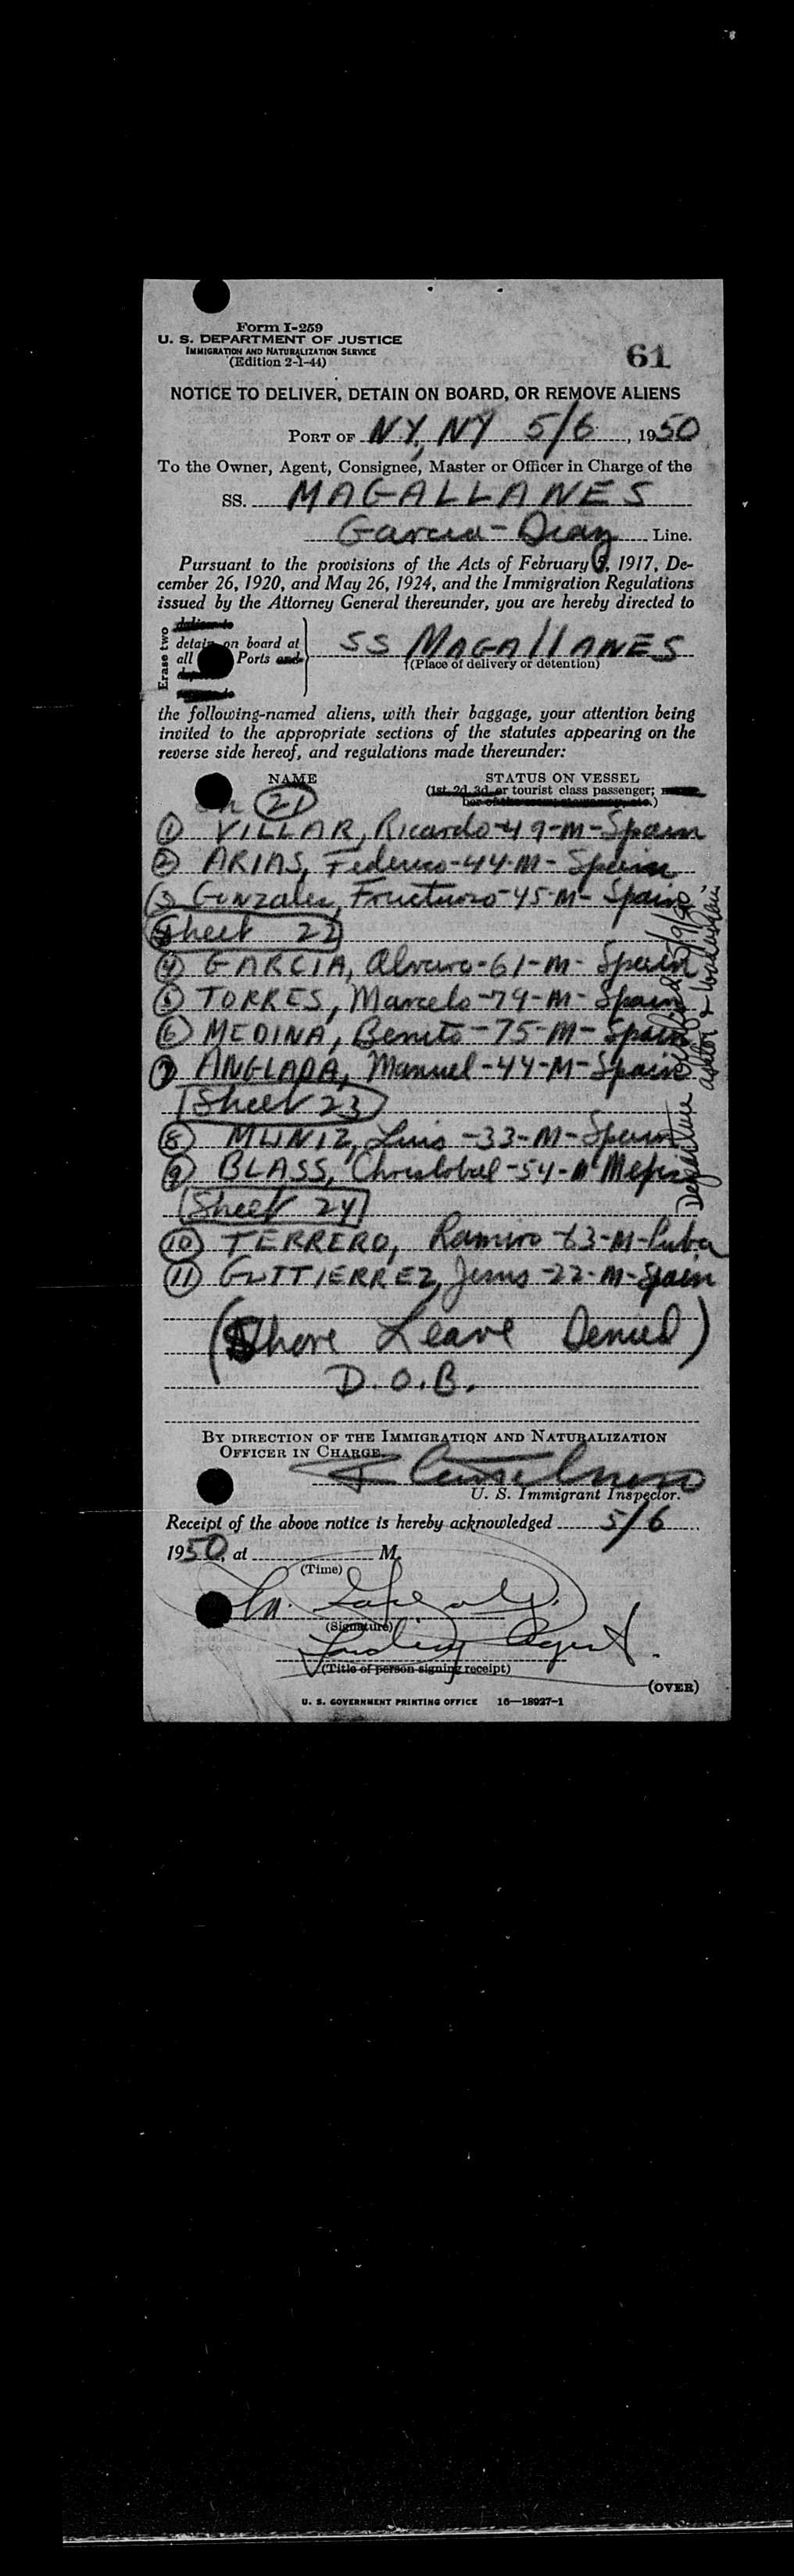 Form I-259
U. S. DEPARTMENT OF JUSTICE
IMMIGRATION AND NATURALIZATION SERVICE
(Edition 2-1-44)
61
NOTICE TO DELIVER, DETAIN ON BOARD, OR REMOVE ALIENS
PORT OF NY, NY 5/6, 1950
To the Owner, Agent, Consignee, Master or Officer in Charge of the
SS. MAGALLANES
Garcia-Diaz Line.
Pursuant to the provisions of the Acts of February 5, 1917, De-
cember 26, 1920, and May 26, 1924, and the Immigration Regulations
issued by the Attorney General thereunder, you are hereby directed to
Erase two
deliver to
detain on board at
all Ports and
SS MAGALLANES
(Place of delivery or detention)
the following-named aliens, with their baggage, your attention being
invited to the appropriate sections of the statutes appearing on the
reverse side hereof, and regulations made thereunder:
NAME STATUS ON VESSEL
(1st, 2d, 3d, or tourist class passenger;
21
1 VILLAR, Ricardo-49-M-Spain
2 ARIAS, Federico-44-M-Spain
3 Gonzales, Fructuoso-45-M-Spain
Sheet 22
4 GARCIA, Alvaro-61-M-Spain
5 TORRES, Marcelo-79-M-Spain
6 MEDINA, Benito-75-M-Spain
7 ANGLADA, Manuel-44-M-Spain
Sheet 23
8 MUNIZ, Luis-33-M-Spain
9 BLASS, Christobal-54-M
Sheet 24
10 TERRERO, Ramiro-63-M-Cuba
11 GUTTIERREZ, Jesus-22-M-Spain
(Shore Leave Denied)
D.O.B.
Departure 5/9/50
BY DIRECTION OF THE IMMIGRATION AND NATURALIZATION
OFFICER IN CHARGE.
U. S. Immigrant Inspector.
Receipt of the above notice is hereby acknowledged 5/6
1950, at M.
(Time)
(Signature)
Landing Agent.
(Title of person signing receipt)
(OVER)
U. S. GOVERNMENT PRINTING OFFICE 16—18927-1